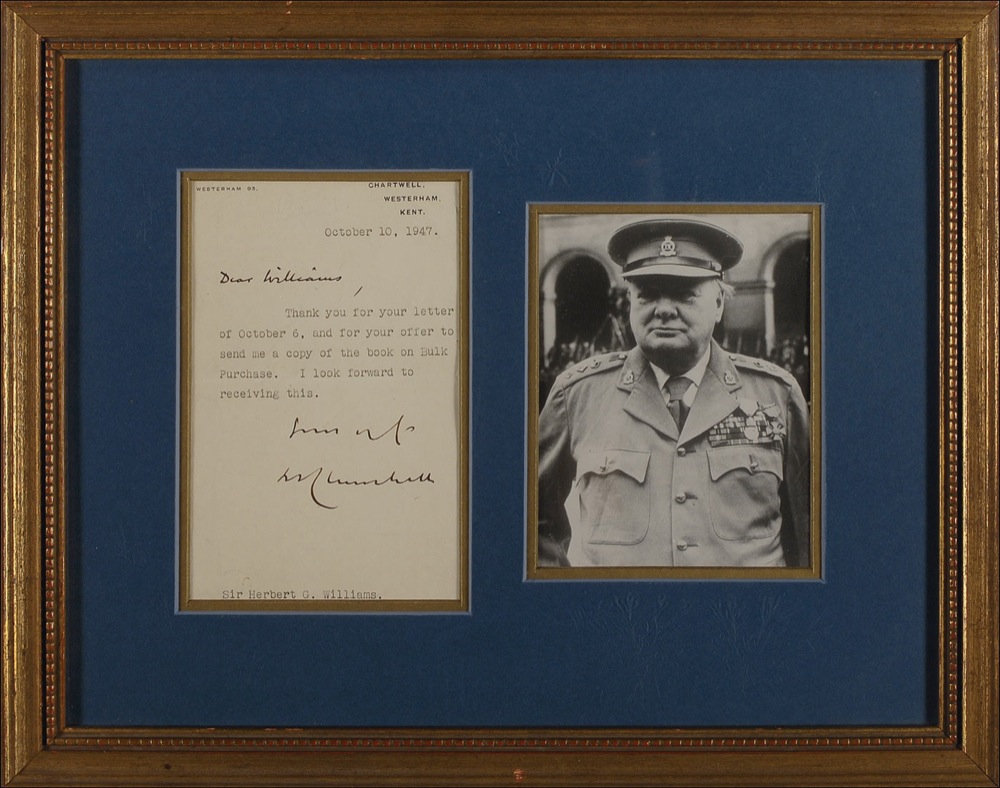 WESTERHAM 93.
CHARTWELL,
WESTERHAM,
KENT.
October 10, 1947.
Dear Williams,
Thank you for your letter
of October 6, and for your offer to
send me a copy of the book on Bulk
Purchase. I look forward to
receiving this.
W Churchill
Sir Herbert G. Williams.